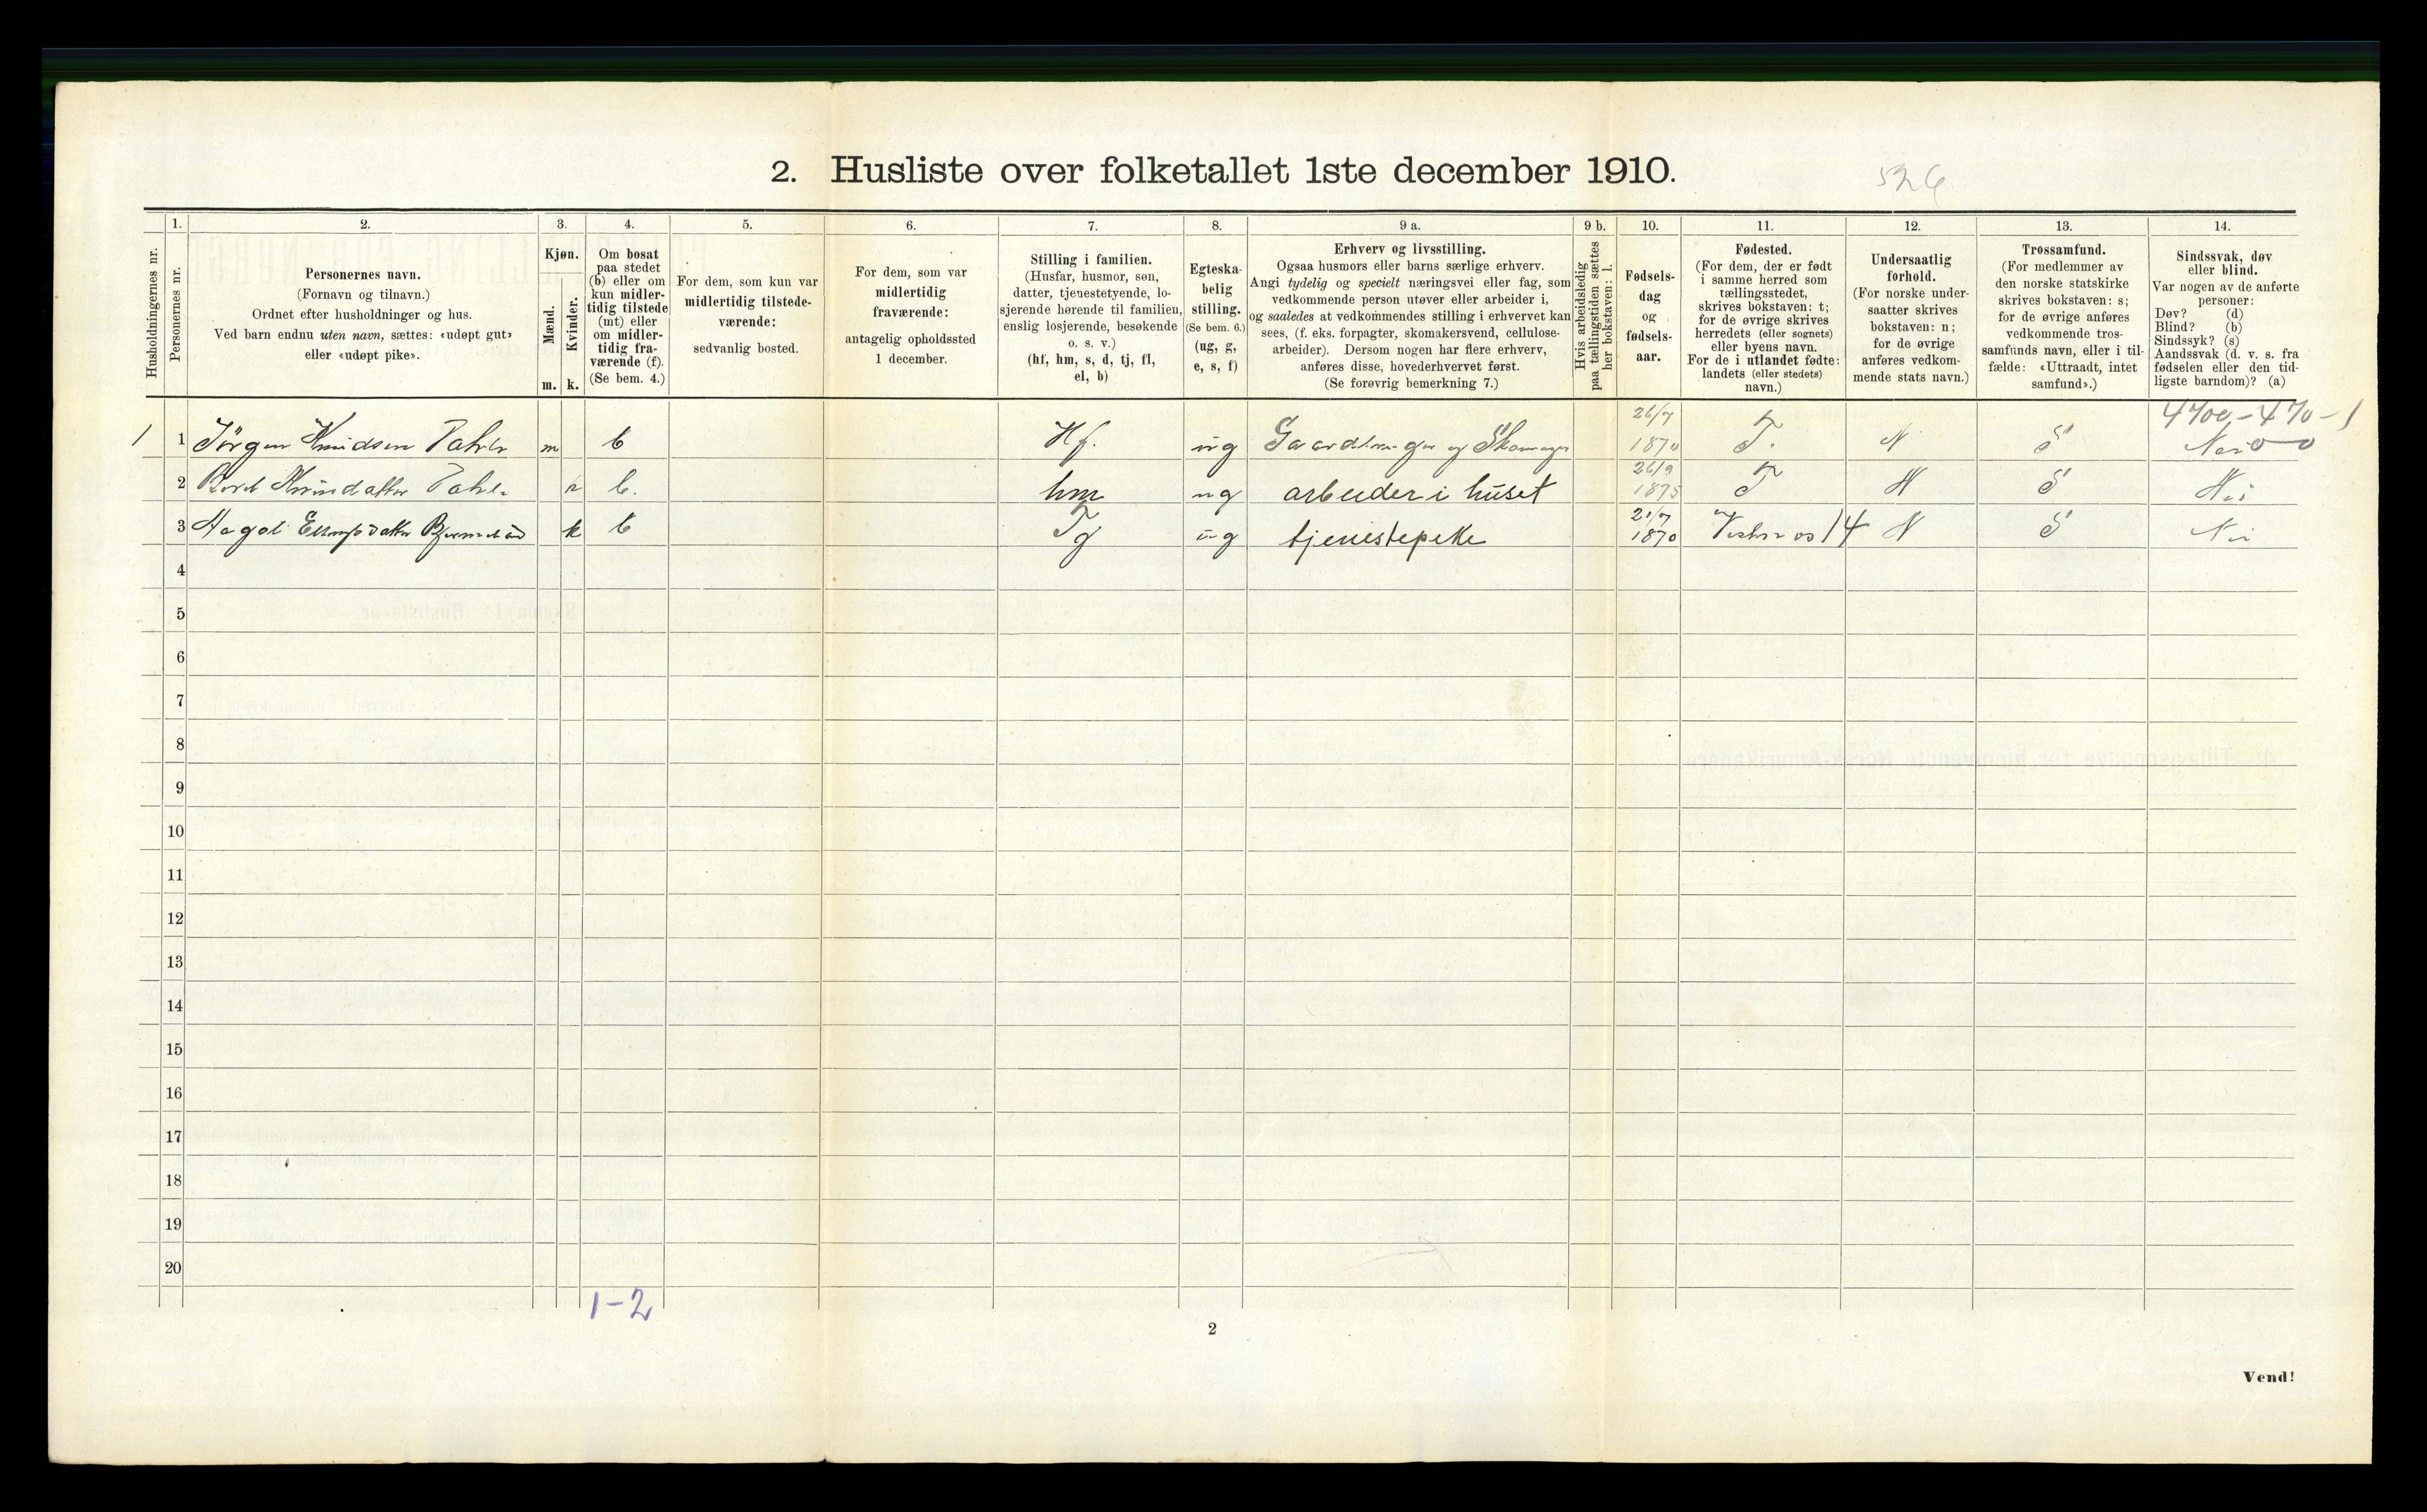 2. Husliste over folketallet 1ste december 1910.
526
Husholdningernes nr.
1.
Personernes nr.
2.
Personernes navn.
(Fornavn og tilnavn.)
Ordnet efter husholdninger og hus.
Ved barn endnu uten navn, sættes: «udøpt gut»
eller «udøpt pike».
3.
Kjøn.
Mænd.
Kvinder.
m. k.
4.
Om bosat
paa stedet
(b) eller om
kun midler-
tidig tilstede
(mt) eller
om midler-
tidig fra-
værende (f).
(Se bem. 4.)
5.
For dem, som kun var
midlertidig tilstede-
værende:
sedvanlig bosted.
6.
For dem, som var
midlertidig
fraværende:
antagelig opholdssted
1 december.
7.
Stilling i familien.
(Husfar, husmor, søn,
datter, tjenestetyende, lo-
sjerende hørende til familien,
enslig losjerende, besøkende
o. s. v.)
(hf, hm, s, d, tj, fl,
el, b)
8.
Egteska-
belig
stilling.
(Se bem. 6.)
(ug, g,
e, s, f)
9 a.
Erhverv og livsstilling.
Ogsaa husmors eller barns særlige erhverv.
Angi tydelig og specielt næringsvei eller fag, som
vedkommende person utøver eller arbeider i,
og saaledes at vedkommendes stilling i erhvervet kan
sees, (f. eks. forpagter, skomakersvend, cellulose-
arbeider). Dersom nogen har flere erhverv,
anføres disse, hovederhvervet først.
(Se forøvrig bemerkning 7.)
9 b.
Hvis arbeidsledig
paa tællingstiden sættes
her bokstaven: l.
10.
Fødsels-
dag
og
fødsels-
aar.
11.
Fødested.
(For dem, der er født
i samme herred som
tællingsstedet,
skrives bokstaven: t;
for de øvrige skrives
herredets (eller sognets)
eller byens navn.
For de i utlandet fødte:
landets (eller stedets)
navn.)
12.
Undersaatlig
forhold.
(For norske under-
saatter skrives
bokstaven: n;
for de øvrige
anføres vedkom-
mende stats navn.)
13.
Trossamfund.
(For medlemmer av
den norske statskirke
skrives bokstaven: s;
for de øvrige anføres
vedkommende tros-
samfunds navn, eller i til-
fælde: «Uttraadt, intet
samfund».)
14.
Sindssvak, døv
eller blind.
Var nogen av de anførte
personer:
Døv? (d)
Blind? (b)
Sindssyk? (s)
Aandssvak (d. v. s. fra
fødselen eller den tid-
ligste barndom)? (a)
4700-470-1
1 1 Jörgen Knudsen m b Hf. ug Gaardbruger og Skomager 26/7 1870 T. N S Nei 0 0
2 Knudsdatter k b. hm ug arbeider i huset 26/9 1875 T N S Nei
3 k b Tj ug tjenestepike 21/7 1870 14 N S Nei
4
5
6
7
8
9
10
11
12
13
14
15
16
17
18
19
20
1-2
2
Vend!